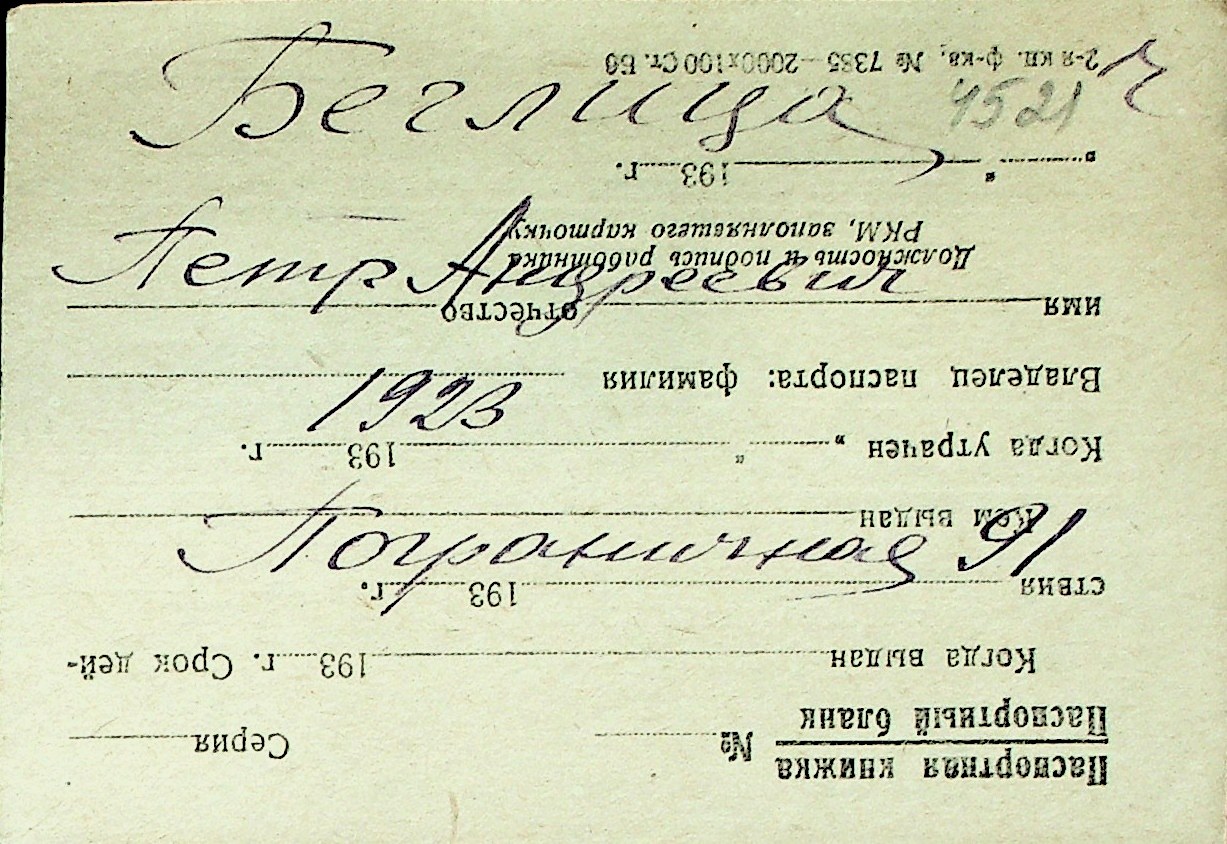 Беглица
4521
Ч
Петр Андреевич
1923
Пограничная 91
Паспортная книжка
Паспортный бланк
№ Серия
Когда выдан 193 г. Срок дей-
ствия 193 г.
Кем выдан
Когда утрачен „ “ 193 г.
Владелец паспорта: фамилия
имя отчество
Должность и подпись работника
РКМ, заполнявшего карточку
„ “ 193 г.
2-я кп. ф-ка, № 7385—2000х100 Ст. Б6